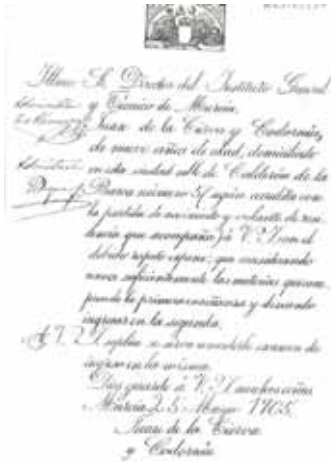 Illmo Sr. Director del Instituto General
y Técnico de Murcia.
Juan de la Cierva y Codorniu,
de nueve años de edad, domiciliado
en esta ciudad calle de Calderón de la
Barca número 5, según acredita con
la partida de nacimiento y volante de
que acompaña, á V. I. con el
debido respeto expone: que considerando
suficientemente las materias que com
prende la primera enseñanza y deseando
ingresar en la segunda,
A V. I. Suplica se sirva concederle examen de
ingreso en la misma.
Dios guarde á V. I. muchos años
Murcia 25 Mayo 1905.
Juan de la Cierva
y Codorniu